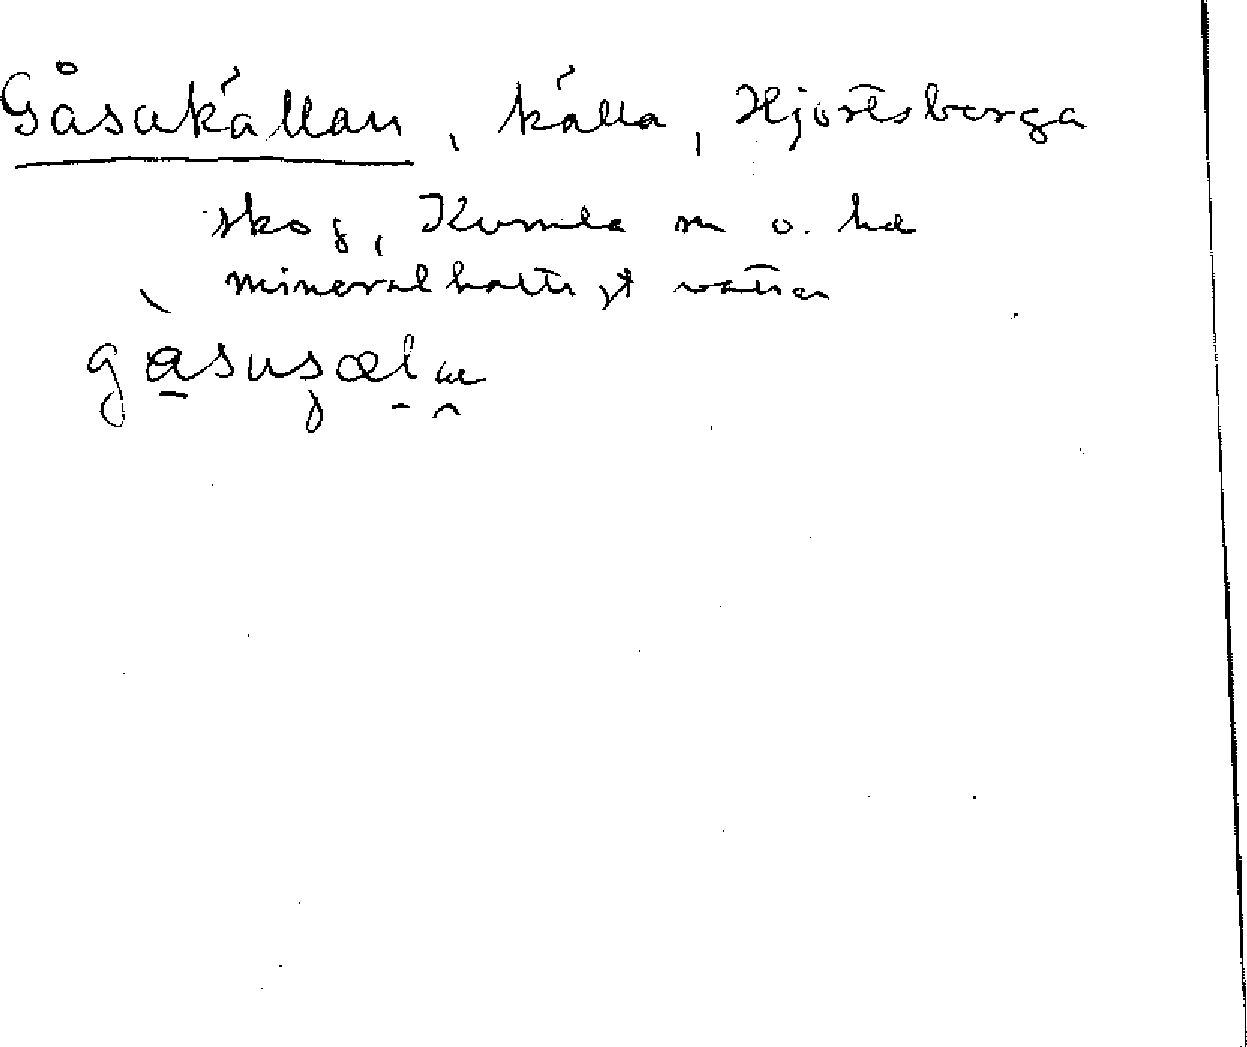 Gåsakällan, källa, Hjortsberga
skog, Kumla sn o. hd
mineralhaltigt vatten